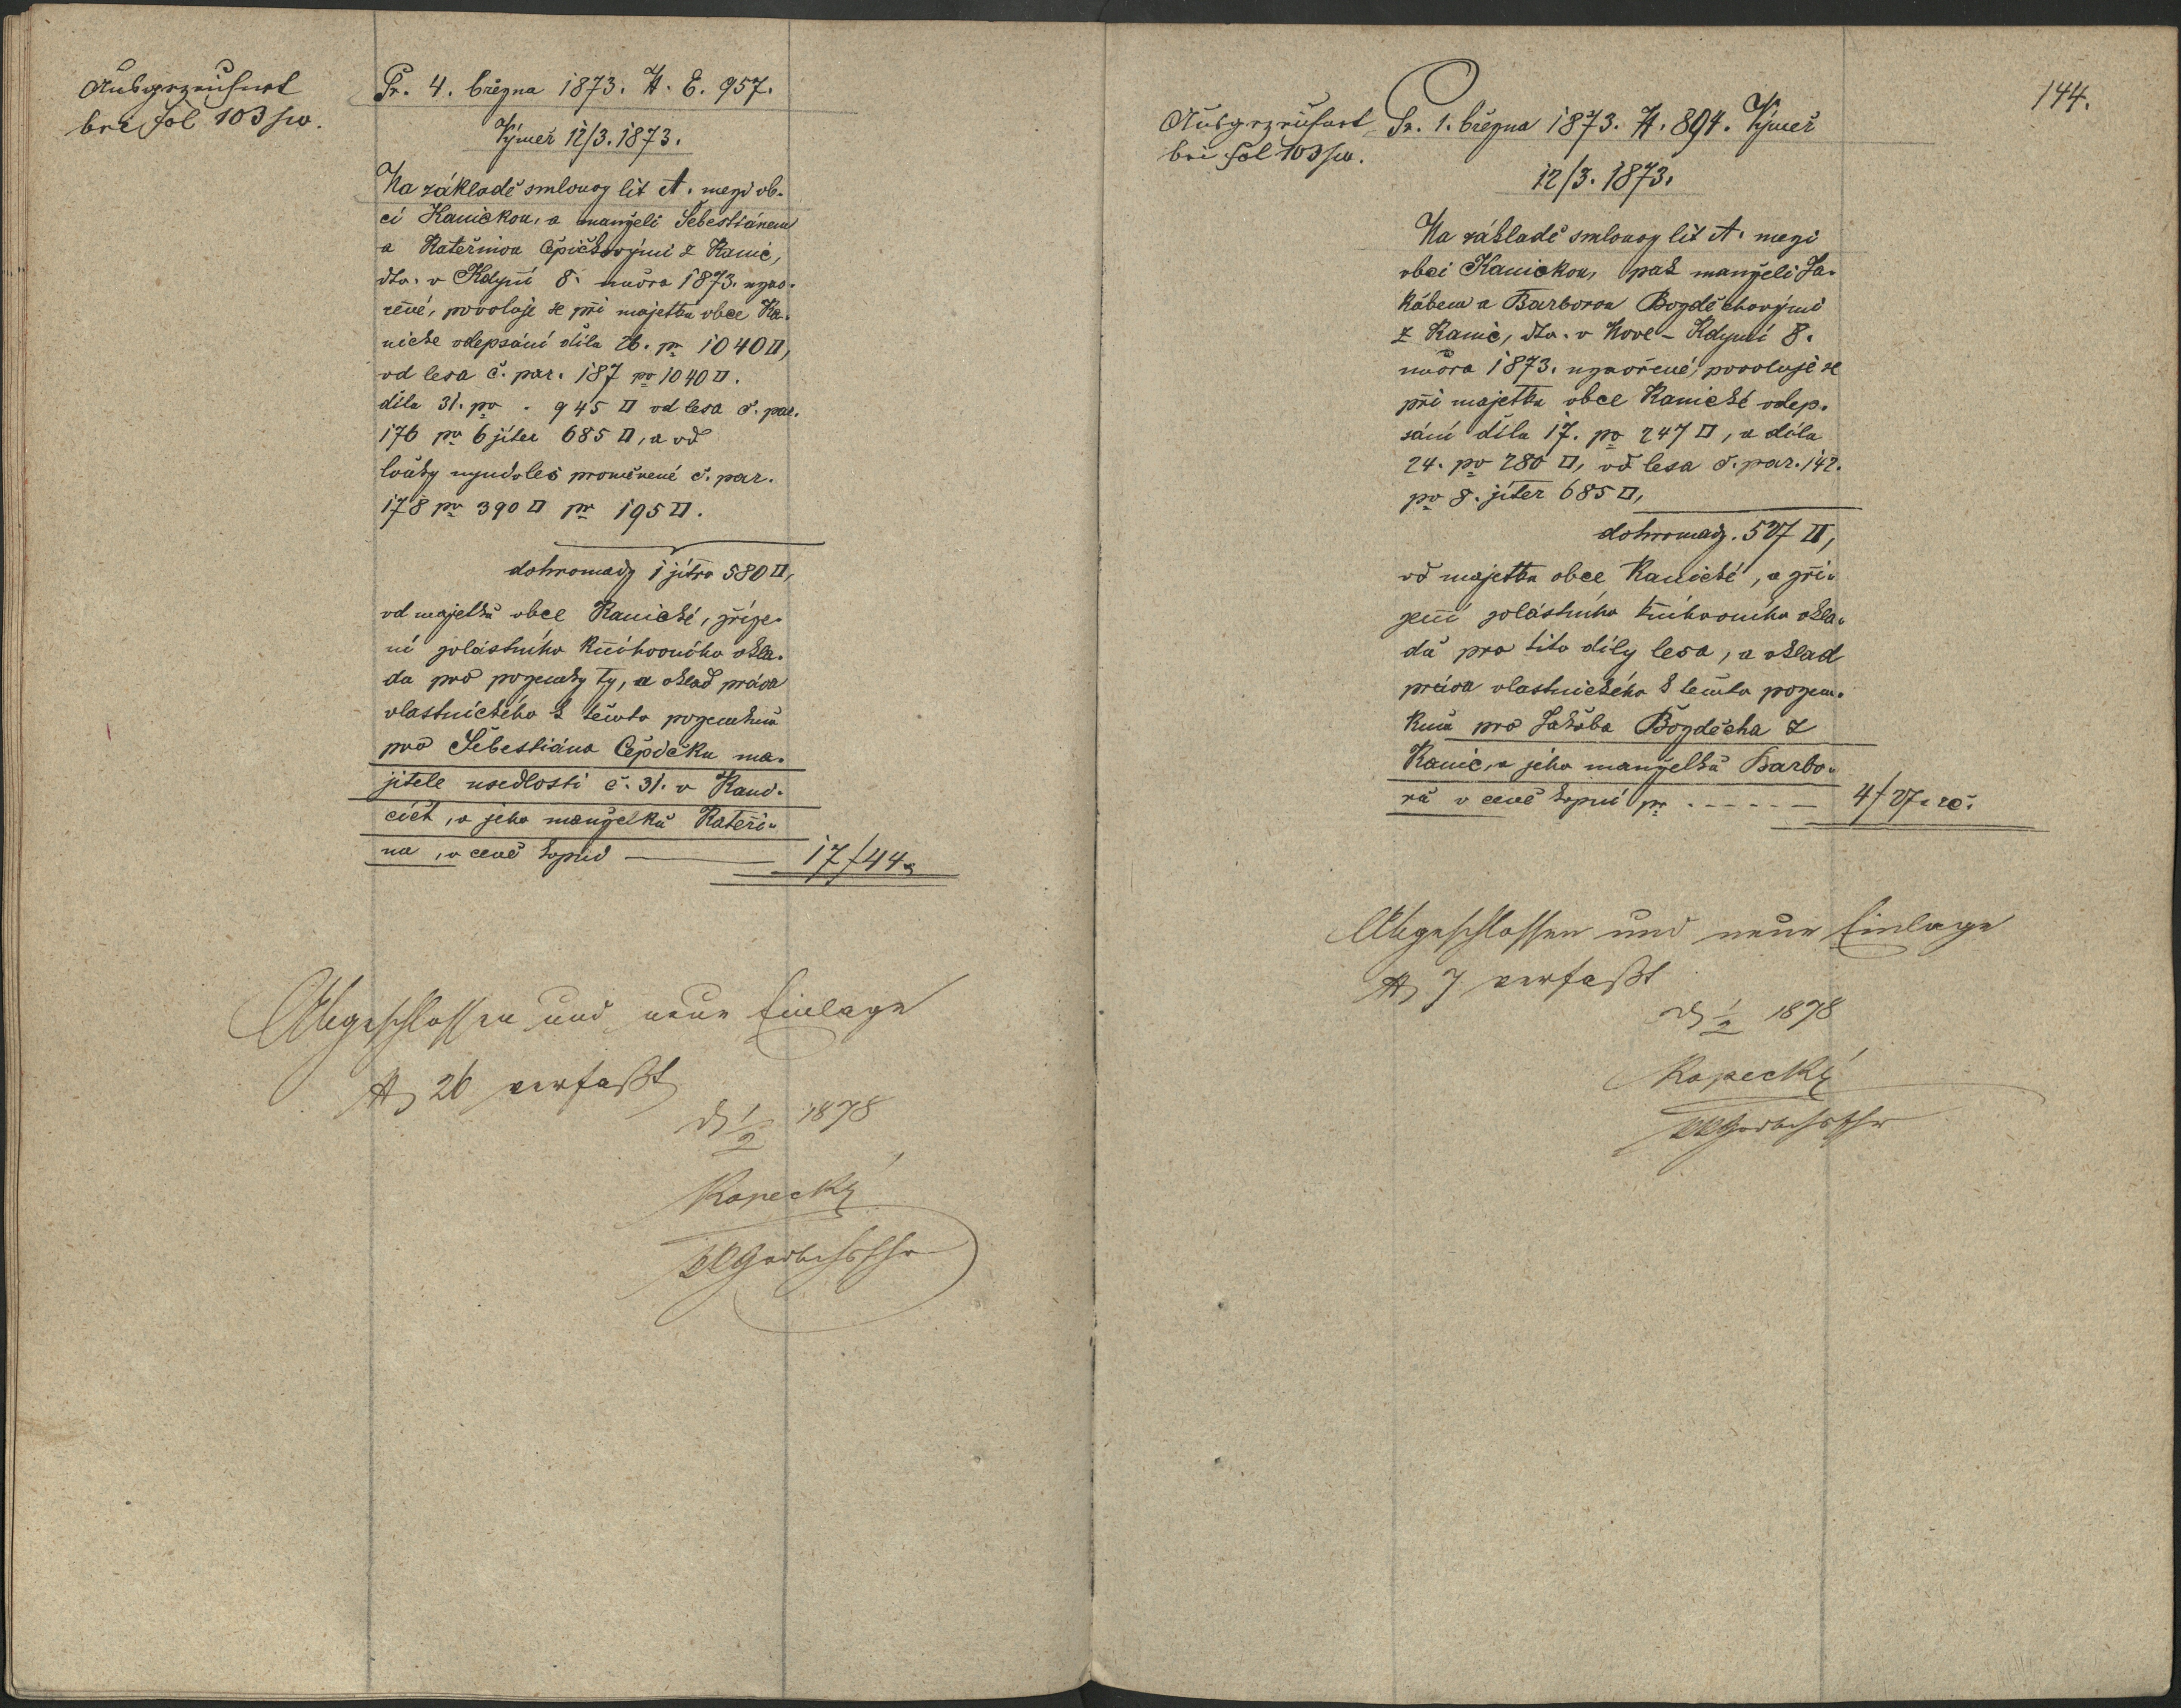 Ausgezeichnet
bei Fol 103
Pr. 4. března 1873. N. E. 957.
Výměř 12/3. 1873.
Na základě smlouvy lit A. mezi ob-
cí Kanickou, a manželi Šebestiánem
a Kateřinou Čepičkovými z Kanic,
dto. v Kdyni 8. února 1873. uzav-
řené, povoluje se při majetku obce Ka-
nické odepsání dílu 26. pr 1040 □,
od lesa č. par. 187 po 1040 □.
dílu 31. po . 945 □ od lesa č. par.
176 po 6 jiter 685 □, a od
louky nyní v les proměněné č. par.
178 po 390 □ pr 195 □.
dohromady 1 jitro 580 □,
od majetku obce Kanické, zříze-
ní zvláštního knihovního vkla-
du pro pozemky ty, a vklad práva
vlastnického k těmto pozemkům
pro Šebestiána Čepičku ma-
jitele usedlosti č. 31. v Kani-
cích, a jeho manželku Kateři-
nu, v ceně kupní — 17 f 44
Abgeschlossen und neue Einlage
N 26 verfaßt
d 1/2 1878
Kopecký
144.
Ausgezeichnet
bei Fol 103
Pr. 1. března 1873. N. 894. Výměř
12/3. 1873.
Na základě smlouvy lit A. mezi
obcí Kanickou, pak manželi Ja-
kubem a Barborou Bozděchovými
z Kanic, dto. v Nové-Kdyni 8.
února 1873. uzavřené, povoluje se
při majetku obce Kanické odep-
sání dílu 17. po 247 □, a dílu
24. po 280 □, od lesa č. par. 142.
po 8. jiter 685 □,
dohromady. 527 □,
od majetku obce Kanické, a zří-
zení zvláštního knihovního vkla-
du pro tito díly lesa, a vklad
práva vlastnického k těmto pozem-
kům pro Jakuba Bozděcha z
Kanic, a jeho manželku Barbo-
ru v ceně kupní pr . - - - - — 4 f 27. rč.
Abgeschlossen und neue Einlage
N 7 verfaßt
d 1/2 1878
Kopecký